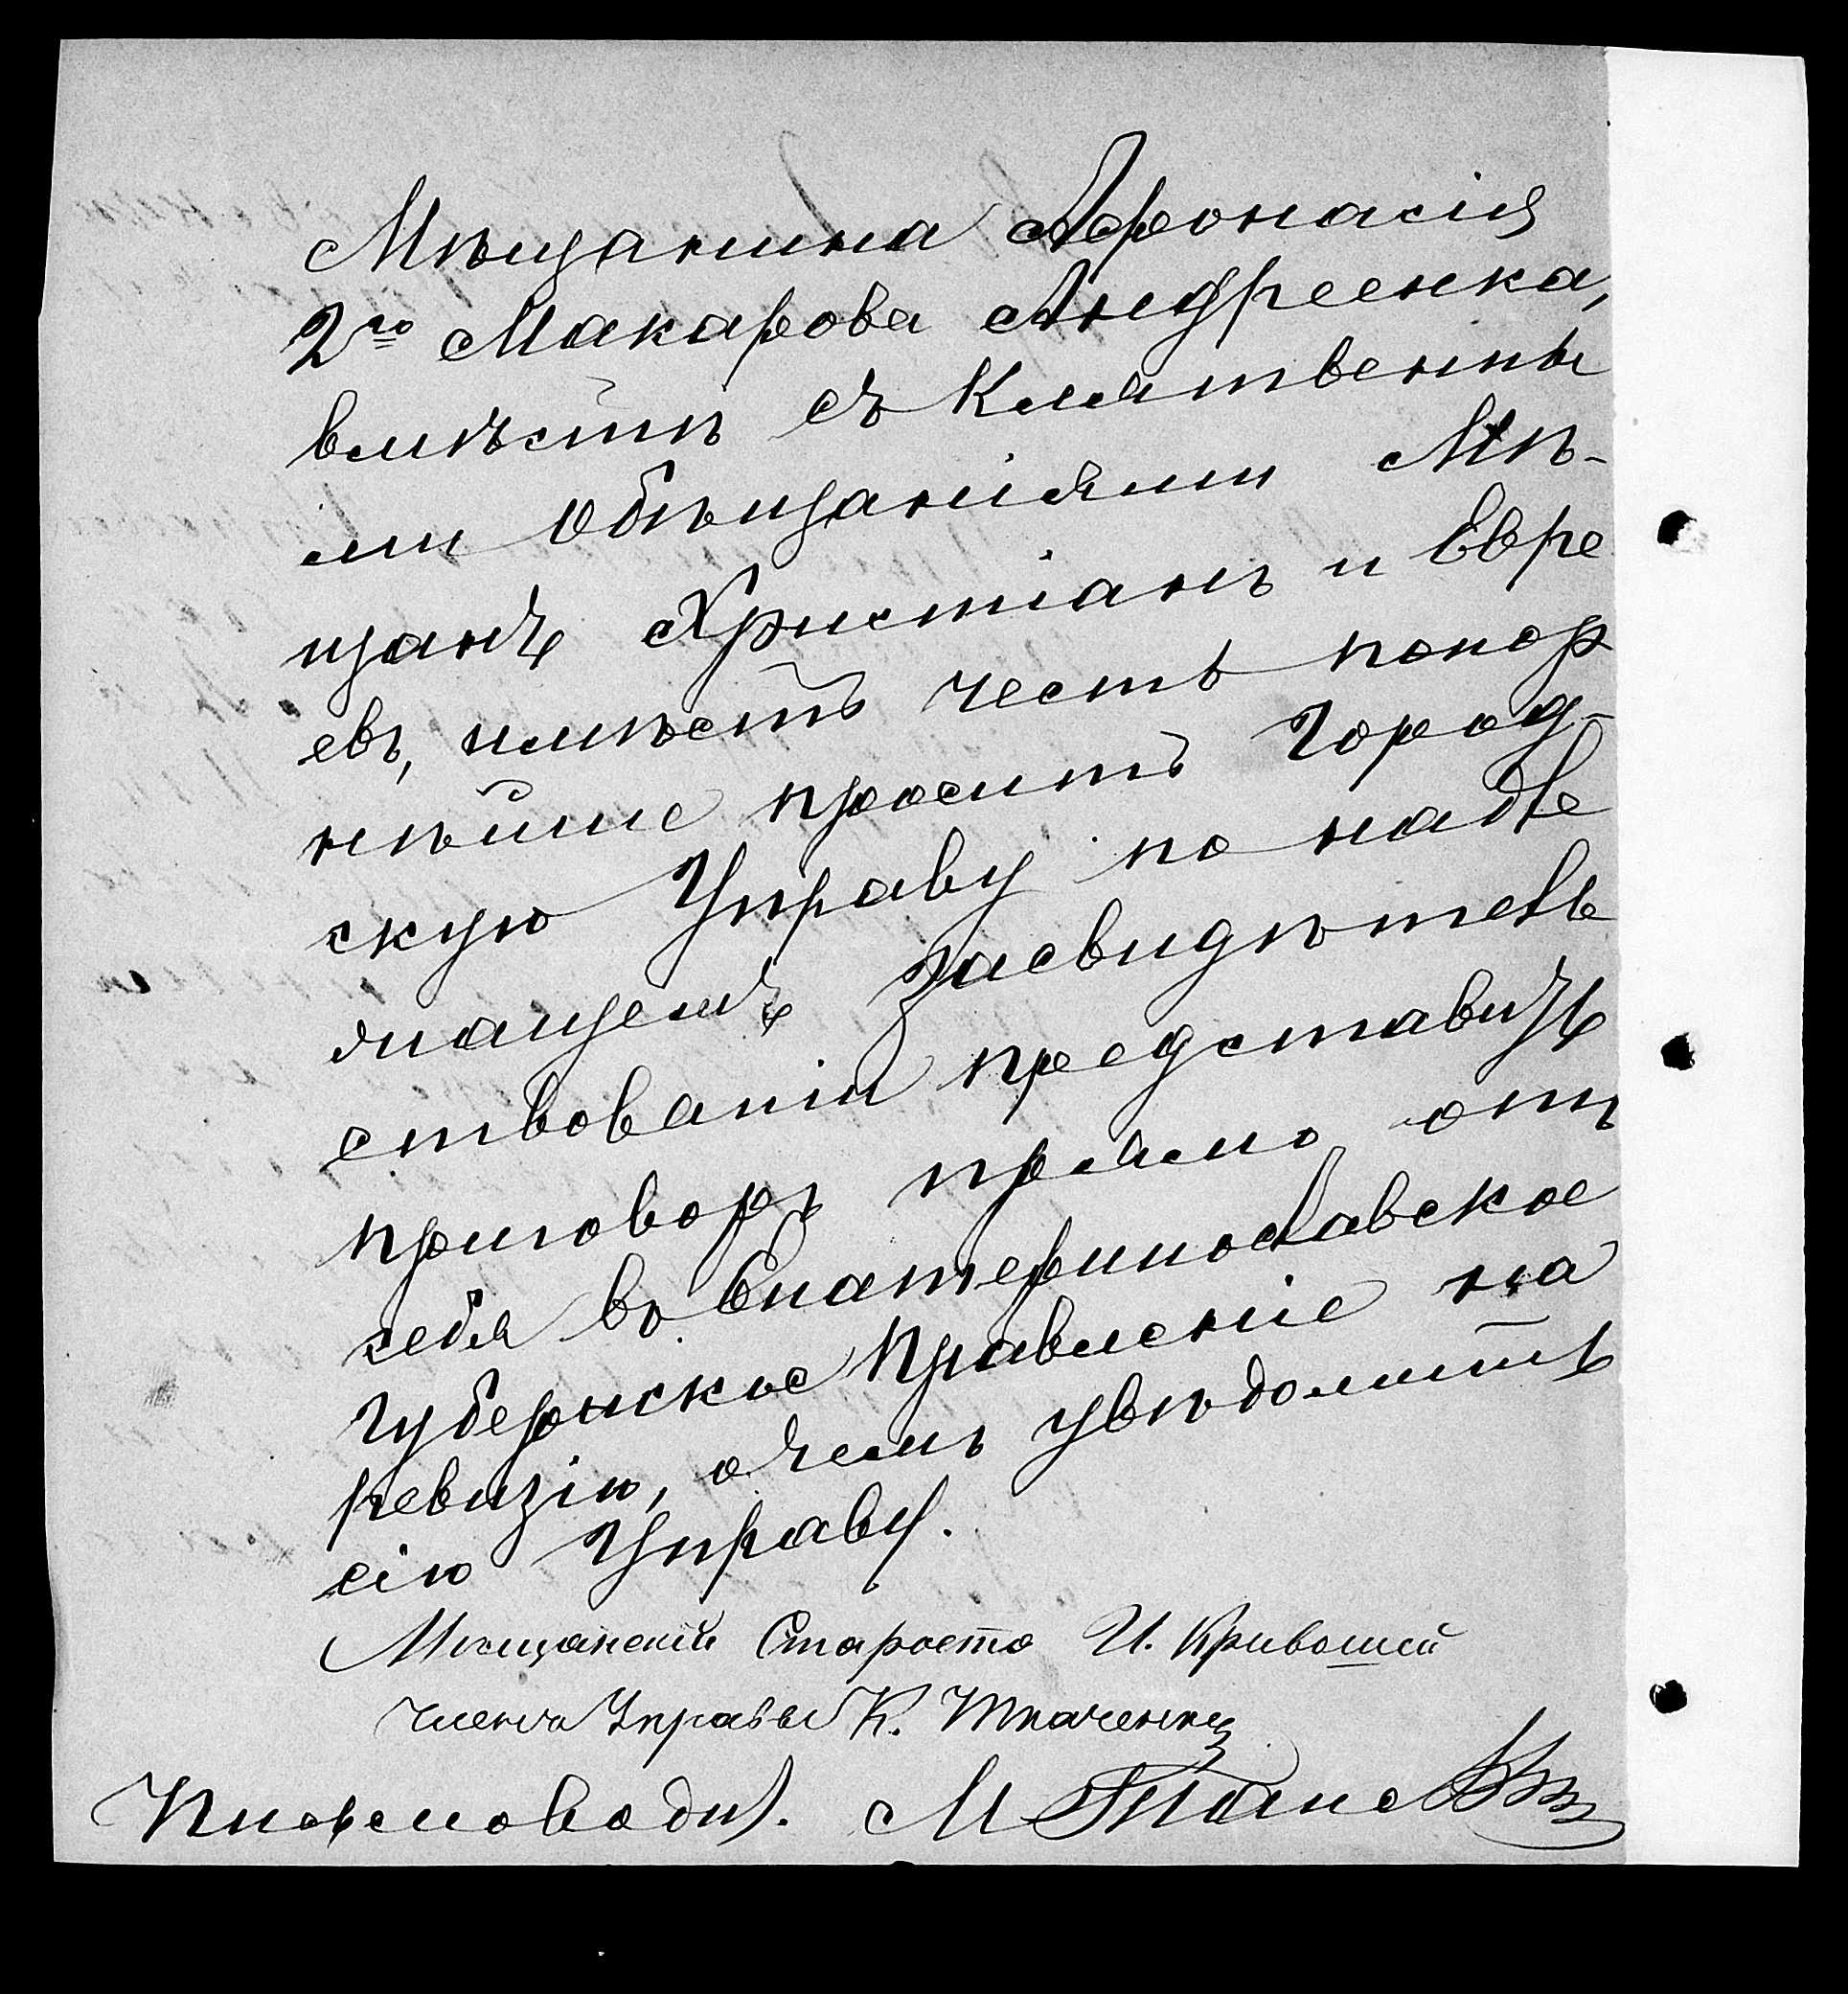 Мѣщанина Афонасія
2го Макарова Андреенка,
вмѣстѣ съ Клятвенны
ми Обѣщаніями Мѣ-
щанъ Христіанъ и Евре
евъ, имѣетъ честь покор
нѣйше просить Город-
скую Управу по надле
жащемъ засвидѣтель
ствованіи представить
приговоръ прямо отъ
себя въ Екатеринославское
Губернское Правленіе на
ревизію, о чемъ увѣдомить
сію Управу.
Мѣщанскій Староста И. Кривошей
Членъ Управы К. Ткаченко
Письмоводи). М